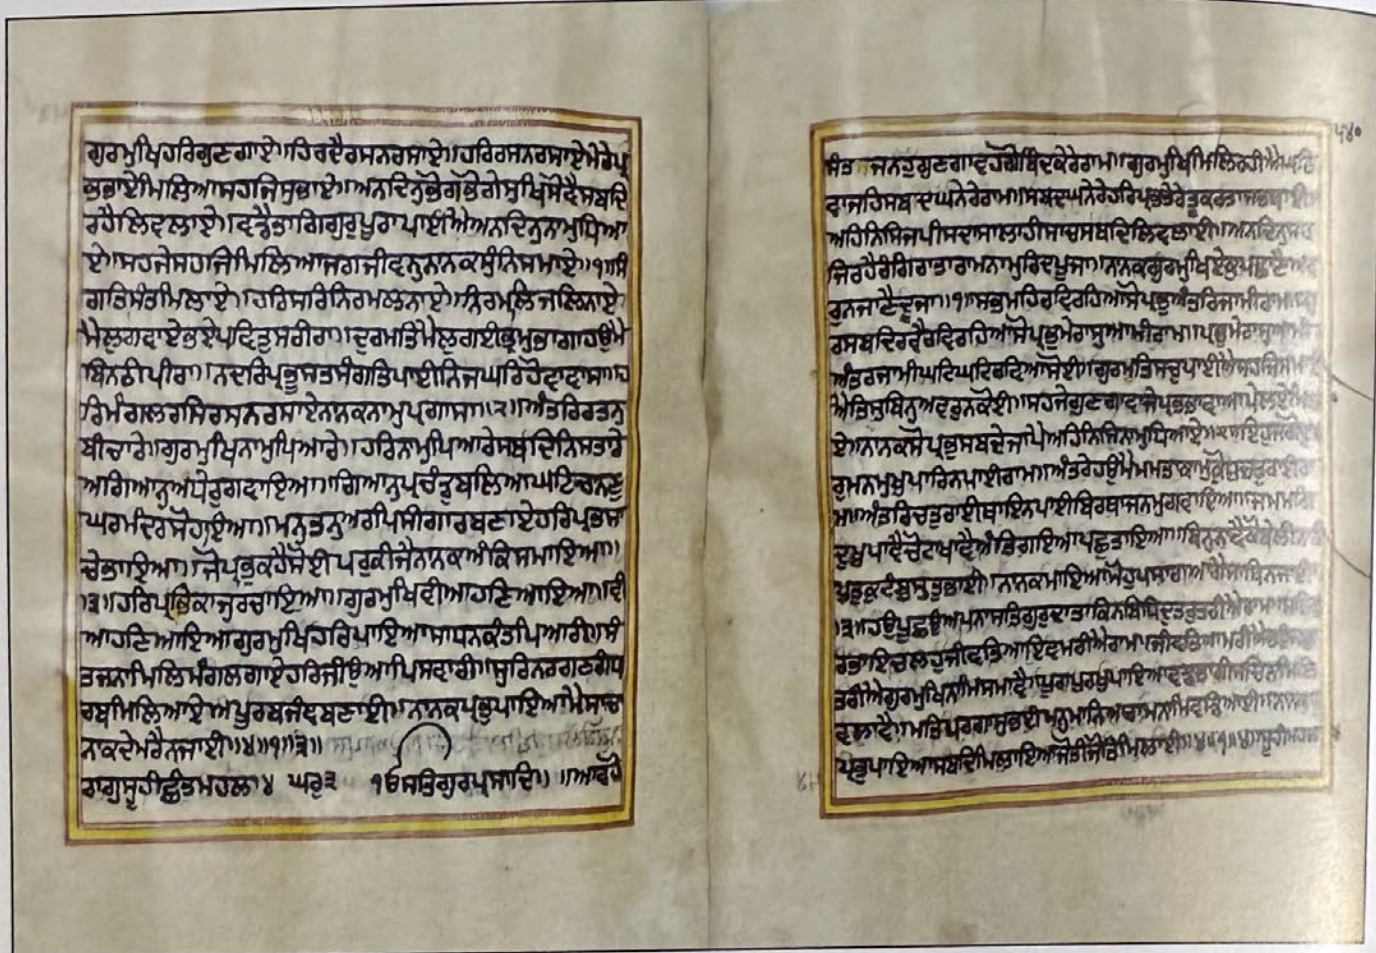 ਗੁਰਮੁਖਿਹਰਿਗੁਣਗਾਏ॥ਹਿਰਦੈਰਸਨਰਸਾਏ॥ਹਰਿਰਸਨਰਸਾਏਮੇਰੇਪ੍ਰ
ਭਭਾਏਮਿਲਿਆਸਹਜਿਸੁਭਾਏ॥ਅਨਦਿਨੁਭੋਗਭੋਗੇਸੁਖਿਸੋਵੈਸਬਦਿ
ਰਹੈਲਿਵਲਾਏ॥ਵਡੈਭਾਗਿਗੁਰੁਪੂਰਾਪਾਈਐਅਨਦਿਨੁਨਾਮੁਧਿਆ
ਏ॥ਸਹਜੇਸਹਜਿਮਿਲਿਆਜਗਜੀਵਨੁਨਾਨਕਸੁੰਨਿਸਮਾਏ॥੧॥ਸੰ
ਗਤਿਸੰਤਮਿਲਾਏ॥ਹਰਿਸਰਿਨਿਰਮਲਨਾਏ॥ਨਿਰਮਲਿਜਲਿਨਾਏ
ਮੈਲੁਗਵਾਏਭਏਪਵਿਤੁਸਰੀਰਾ॥ਦੁਰਮਤਿਮੈਲੁਗਈਭ੍ਰਮੁਭਾਗਾਹਉਮੈ
ਬਿਨਠੀਪੀਰਾ॥ਨਦਰਿਪ੍ਰਭੂਸਤਸੰਗਤਿਪਾਈਨਿਜਘਰਿਹੋਵਾਵਾਸਾ॥ਹ
ਰਿਮੰਗਲਰਸਿਰਸਨਰਸਾਏਨਾਨਕਨਾਮੁਪ੍ਰਗਾਸਾ॥੨॥ਅੰਤਰਿਰਤਨੁ
ਬੀਚਾਰੇ॥ਗੁਰਮੁਖਿਨਾਮੁਪਿਆਰੇ॥ਹਰਿਨਾਮੁਪਿਆਰੇਸਬਦਿਨਿਸਤਾਰੇ
ਅਗਿਆਨੁਅਧੇਰੁਗਵਾਇਆ॥ਗਿਆਨੁਪ੍ਰਚੰਡੁਬਲਿਆਘਟਿਚਾਨਣੁ
ਘਰਮੰਦਰਸੋਹਾਇਆ॥ਮਨੁਤਨੁਅਰਪਿਸੀਗਾਰਬਣਾਏਹਰਿਪ੍ਰਭਸਾ
ਚੇਭਾਇਆ॥ਜੋਪ੍ਰਭੁਕਹੈਸੋਈਪਰੁਕੀਜੈਨਾਨਕਅੰਕਿਸਮਾਇਆ॥
੩॥ਹਰਿਪ੍ਰਭਿਕਾਜੁਰਚਾਇਆ॥ਗੁਰਮੁਖਿਵੀਆਹਣਿਆਇਆ॥ਵੀ
ਆਹਣਿਆਇਆਗੁਰਮੁਖਿਹਰਿਪਾਇਆਸਾਧਨਕੰਤਪਿਆਰੀ॥ਸੰ
ਤਜਨਾਮਿਲਿਮੰਗਲਗਾਏਹਰਿਜੀਉਆਪਿਸਵਾਰੀ॥ਸੁਰਿਨਰਗਣਗੰਧ
ਰਬਮਿਲਿਆਏਅਪੂਰਬਜੰਞਬਣਾਈ॥ਨਾਨਕਪ੍ਰਭੁਪਾਇਆਮੈਸਾਚਾ
ਨਾਕਦੇਮਰੈਨਜਾਈ॥੪॥੧॥੩॥
ਰਾਗੁਸੂਹੀਛੰਤਮਹਲਾ੪ ਘਰੁ੩ ੴਸਤਿਗੁਰਪ੍ਰਸਾਦਿ॥ ॥ਆਵਹੋ
੫੪੦
ਸੰਤਜਨਹੁਗੁਣਗਾਵਹਗੋਬਿੰਦਕੇਰੇਰਾਮ॥ਗੁਰਮੁਖਿਮਿਲਿਰਹੀਐਘਰਿ
ਵਾਜਹਿਸਬਦਘਨੇਰੇਰਾਮ॥ਸਬਦਘਨੇਰੇਹਰਿਪ੍ਰਭਤੇਰੇਤੂਕਰਤਾਸਭਥਾਈ
ਅਹਿਨਿਸਿਜਪੀਸਦਾਸਾਲਾਹੀਸਾਚਸਬਦਿਲਿਵਲਾਈ॥ਅਨਦਿਨੁਸਹ
ਜਿਰਹੈਰੰਗਿਰਾਤਾਰਾਮਨਾਮੁਰਿਦਪੂਜਾ॥ਨਾਨਕਗੁਰਮੁਖਿਏਕੁਪਛਾਣੈਅਵ
ਰੁਨਜਾਣੈਦੂਜਾ॥੧॥ਸਭਮਹਿਰਵਿਰਹਿਆਸੋਪ੍ਰਭੁਅੰਤਰਜਾਮੀਰਾਮ
ਰਸਬਦਿਰਵੈਰਵਿਰਹਿਆਸੋਪ੍ਰਭੁਮੇਰਾਸੁਆਮੀਰਾਮ॥ਪ੍ਰਭੁਮੇਰਾਸੁਆਮੀ
ਅੰਤਰਜਾਮੀਘਟਿਘਟਿਰਵਿਆਸੋਈ॥ਗੁਰਮਤਿਸਚੁਪਾਈਐਸਹਜਿਸਮਾ
ਐਤਿਸੁਬਿਨੁਅਵਰੁਨਕੋਈ॥ਸਹਜੇਗੁਣਗਾਵਾਜੇਪ੍ਰਭਭਾਵਾਆਪੇਲਏਮਿਲਾ
ਏ॥ਨਾਨਕਸੋਪ੍ਰਭੁਸਬਦੇਜਾਪੈਅਹਿਨਿਸਿਨਾਮੁਧਿਆਏ॥੨॥ਇਹੁਜਗੋ
ਰੁਮਨਮੁਖੁਪਾਰਿਨਪਾਈਰਾਮ॥ਅੰਤਰੇਹਉਮੈਮਮਤਾਕਾਮੁਕ੍ਰੋਧੁਚਤੁਰਾਈ
ਮ॥ਅੰਤਰਿਚਤੁਰਾਈਥਾਇਨਪਾਈਬਿਰਥਾਜਨਮੁਗਵਾਇਆ॥ਜਮਮਗਿ
ਦੁਖੁਪਾਵੈਚੋਟਾਖਾਵੈਅੰਤਿਗਇਆਪਛੁਤਾਇਆ॥ਬਿਨੁਨਾਵੈਕੋਬੇਲੀਨਾਹੀ
ਪੁਤੁਕੁਟੰਬੁਸੁਤੁਭਾਈ॥ਨਾਨਕਮਾਇਆਮੋਹੁਪਸਾਰਾਆਗੈਸਾਥਿਨਜਾਈ
॥੩॥ਹਉਪੂਛਉਅਪਨਾਸਤਿਗੁਰੁਦਾਤਾਕਿਨਬਿਧਿਦੁਤਰੁਤਰੀਐਰਾਮ॥ਸਤਿਗੁ
ਰਭਾਇਚਲਹੁਜੀਵਤਿਆਇਵਮਰੀਐਰਾਮ॥ਜੀਵਤਿਆਮਰੀਐਭਉਜਲੁ
ਤਰੀਐਗੁਰਮੁਖਿਨਾਮਿਸਮਾਵੈ॥ਪੂਰਾਪੁਰਖੁਪਾਇਆਵਡਭਾਗੀਸਚਿਨਾਮਿਲਿ
ਵਲਾਵੈ॥ਮਤਿਪਰਗਾਸੁਭਈਮਨੁਮਾਨਿਆਰਾਮਨਾਮਿਵਡਿਆਈ॥ਨਾਨਕ
ਪ੍ਰਭੁਪਾਇਆਸਬਦਿਮਿਲਾਇਆਜੋਤੀਜੋਤਿਮਿਲਾਈ॥੪॥੧॥੪॥ਸੂਹੀਮਹਲਾ